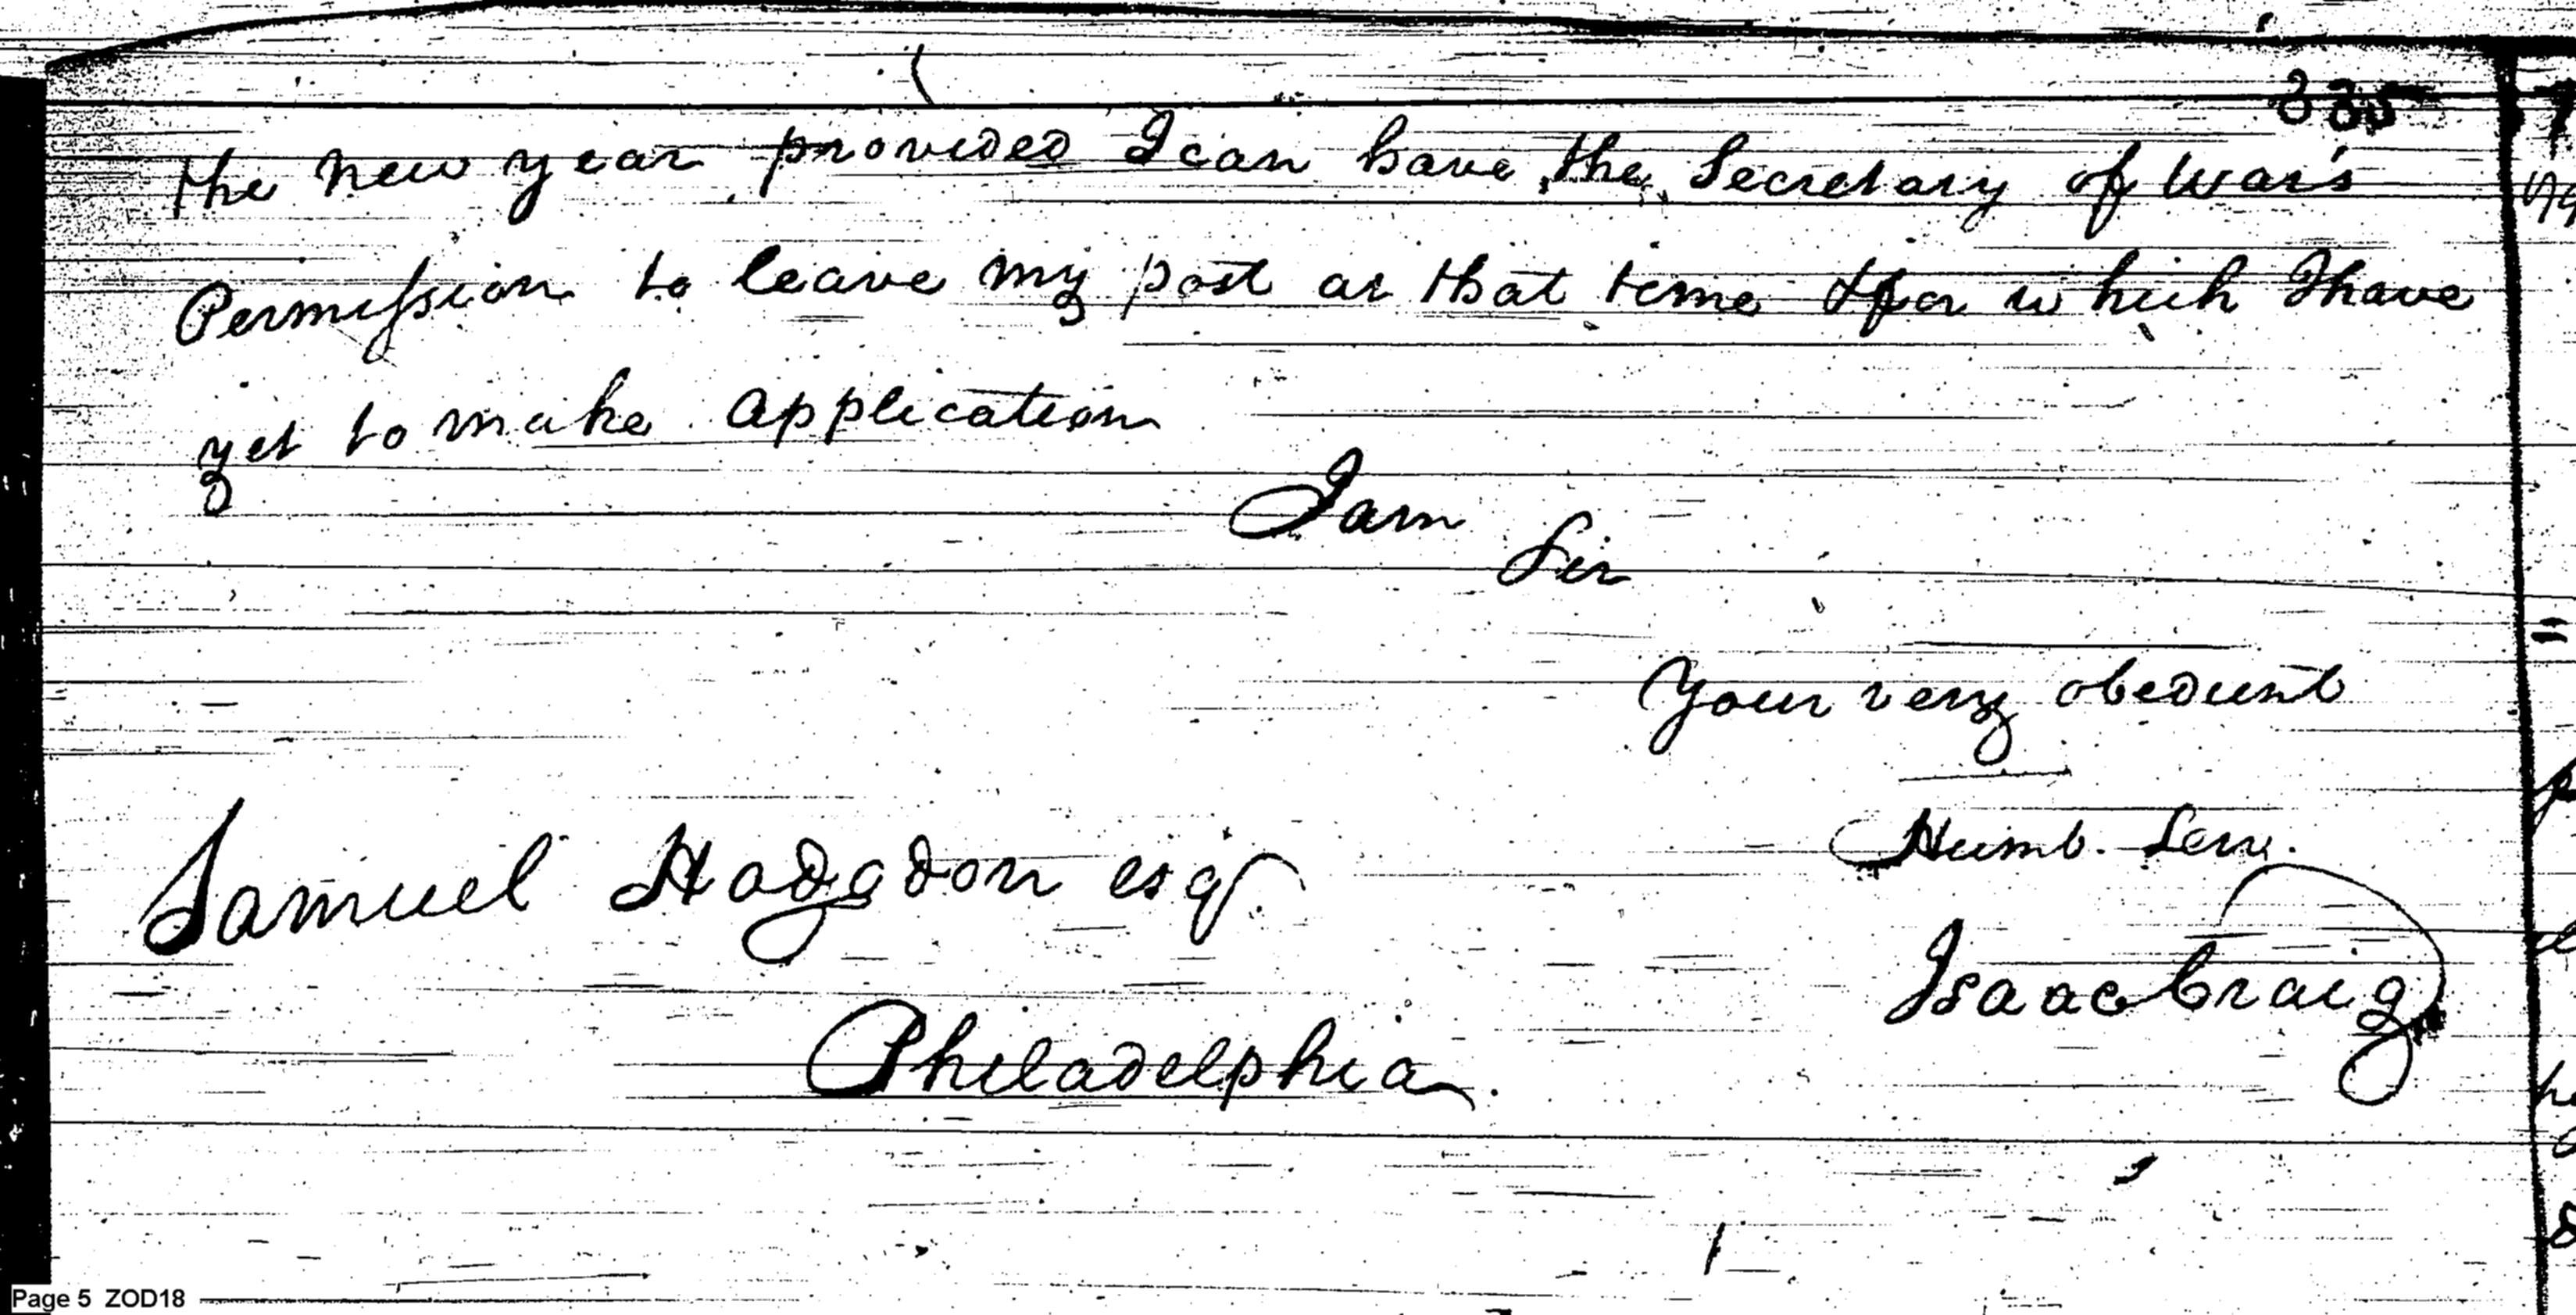 335
the new year provided I can have the Secretary of War's
Permission to leave my post at that time & for which I have
yet to make application
I am
Sir
Your very obedient
Humb. Serv.
Samuel Hodgdon esqr
Isaac Craig
Philadelphia.
Page 5 ZOD18